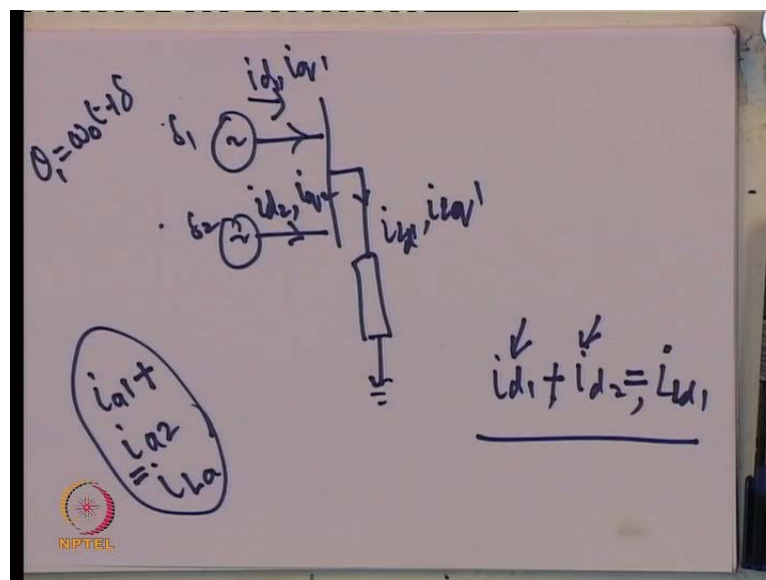 θ₁ = ω₀t + δ
id, iq1
δ1
id2, iq2
δ2
iLd1, iLq1
ia1 +
ia2
= iLa
id1 + id2 = iLd1
NPTEL